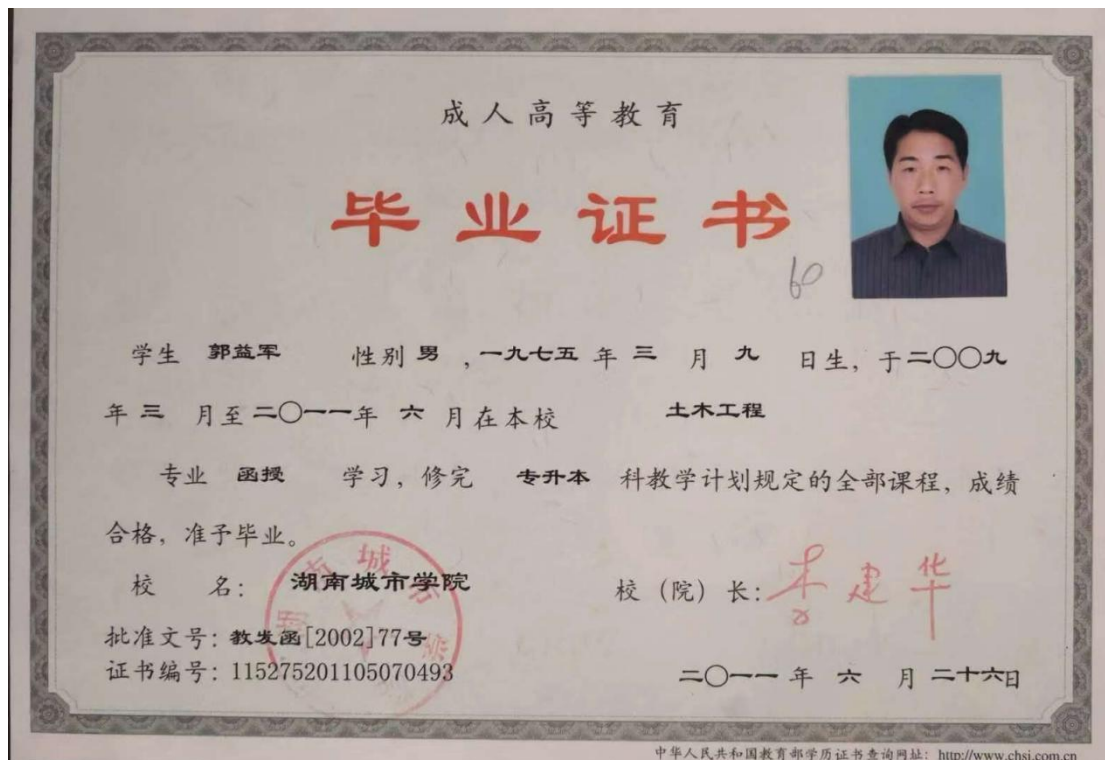 成人高等教育
毕业证书
60
学生 郭益军 性别 男 ,一九七五 年 三 月 九 日生, 于二〇〇九
年 三 月至 二〇一一年 六 月在本校 土木工程
专业 函授 学习, 修完 专升本 科教学计划规定的全部课程, 成绩
合格, 准予毕业。
校 名: 湖南城市学院
校 (院) 长: 李建华
批准文号: 教发函[2002]77号
证书编号: 115275201105070493
二〇一一 年 六 月 二十六日
中华人民共和国教育部学历证书查询网址: http://www.chsi.com.cn